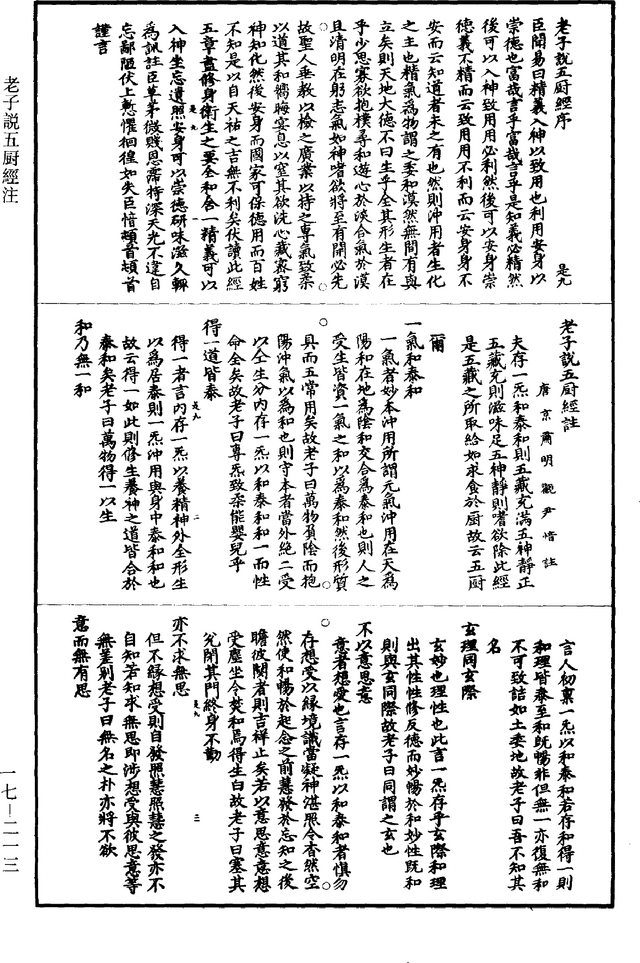 老子說五厨經注
一七—二一三
老子說五厨經序
是九
臣聞易曰精義入神以致用也利用安身以
崇德也富哉言乎富哉言乎是知義必精然
後可以入神致用用必利然後可以安身崇
德義不精而云致用用不利而云安身身不
安而云知道者未之有也然則沖用者生化
之主也精氣為物謂之委和漠然無間有與
立矣則天地大德不曰生乎全其形生者在
乎少思寡欲抱樸尋和遊心於淡合氣於漠
且清明在躬志氣如神嗜欲將至有開必先
故聖人垂教以檢之廣業以持之專氣致柔
以道其和嚮晦宴息以窒其欲洗心藏密窮
神知化然後安身而國家可保德用而百姓
不知是以自天祐之吉無不利矣伏讀此經
五章盡修身衛生之要全和含一精義可以
入神坐忘遺照安身可以崇德研味滋久輒
為訓註臣草茅微賤恩霈特深天光不違自
忘鄙陋伏上慙懼徊徨如失臣愔頓首頓首
謹言
老子說五厨經註
唐京肅明觀尹愔註
夫存一炁和泰和則五藏充滿五神靜正
五藏充則滋味足五神靜則嗜欲除此經
是五藏之所取給如求食於厨故云五厨
爾
一氣和泰和
一氣者妙本沖用所謂元氣沖用在天為
陽和在地為陰和交合為泰和也則人之
受生皆資一氣之和以為泰和然後形質
具而五常用矣故老子曰萬物負陰而抱
陽沖氣以為和也則守本者當外絕二受
以全生分內存一炁以和泰和和一而性
命全矣故老子曰專炁致柔能嬰兒乎
得一道皆泰
得一者言內存一炁以養精神外全形生
以為居泰則一炁沖用與身中泰和和也
故云得一如此則修生養神之道皆合於
泰和矣老子曰萬物得一以生
和乃無一和
言人初稟一炁以和泰和若存和得一則
和理皆泰至和既暢非但無一亦復無和
不可致詰如土委地故老子曰吾不知其
名
玄理同玄際
玄妙也理性也此言一炁存乎玄際和理
出其性性修反德而妙暢於和妙性既和
則與玄同際故老子曰同謂之玄也
不以意思意
意者想愛也言存一炁以和泰和者慎勿
存想受以緣境識當凝神湛照令杳然空
然使和暢於起念之前慧發於忘知之後
瞻彼闋者則吉祥止矣若以意思意意想
受塵坐令焚和焉得生白故老子曰塞其
兌閉其門終身不勤
亦不求無思
但不緣想受則自發照慧照慧之發亦不
自知若知求無思即涉想受與彼思意等
無差別老子曰無名之朴亦將不欲
意而無有思